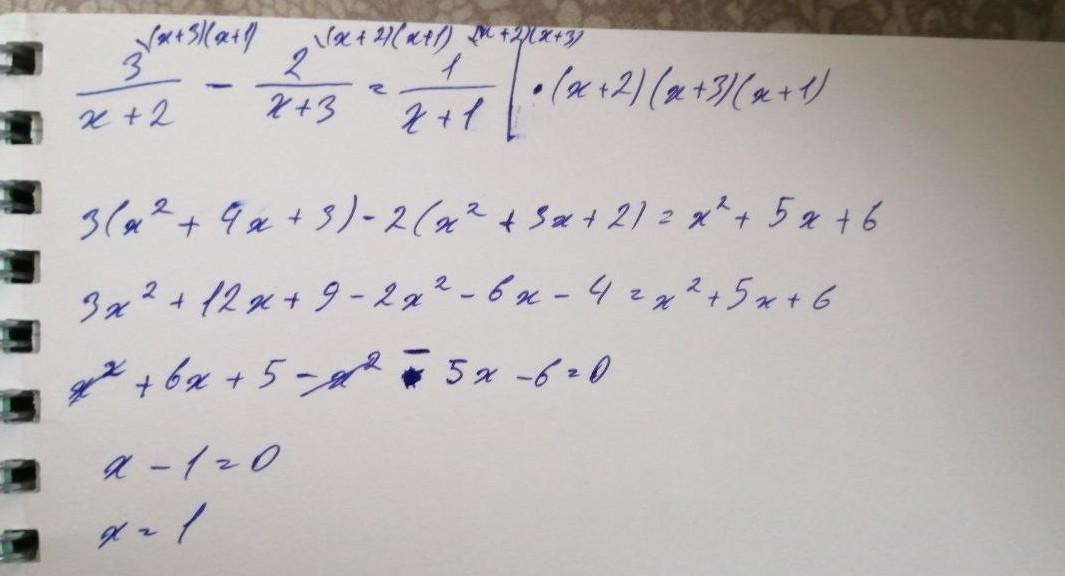 (x+3)(x+1) (x+2)(x+1) (x+2)(x+3)
3/(x+2) - 2/(x+3) = 1/(x+1) | · (x+2)(x+3)(x+1)
3(x² + 4x + 3) - 2(x² + 3x + 2) = x² + 5x + 6
3x² + 12x + 9 - 2x² - 6x - 4 = x² + 5x + 6
x² + 6x + 5 - x² - 5x - 6 = 0
x - 1 = 0
x = 1